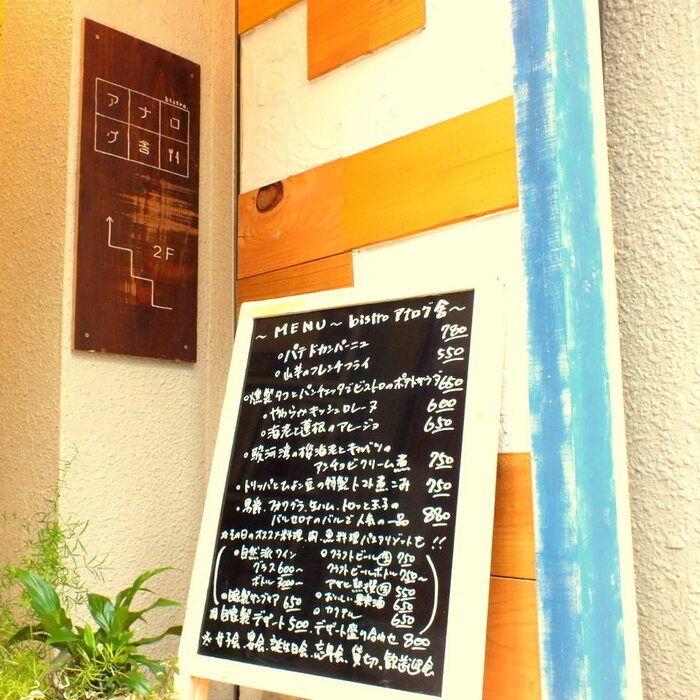 bistro.
アナロ
グ舎
2F
~MENU~ bistro アナログ舎~
・パテドカンパーニュ 780
・山羊のフレンチフライ 550
・燻製タコとパンチェッタでビストロのポテトサラダ 650
・やわらかキッシュロレーヌ 600
・海老と蓮根のアヒージョ 650
・駿河湾の桜海老とキャベツの
アンチョビクリーム煮 750
・トリッパとひよこ豆の特製トマト煮こみ 750
フォアグラ、生ハム、トロッと玉子の
バルセロナのバルで人気の一品 880
その日のオススメ料理、肉、魚料理パスタリゾットも!!
・自然派ワイン
グラス 600~
ボトル 3000~
・自家製サングリア 650
・クラフトビール 750
クラフトビールボトル 750~
アサヒ熟撰 550
・おいしい果実酒 650
・カクテル 650
自家製デザート 500、デザート盛り合わせ 800
※女子会、宴会、誕生日会、忘年会、貸切、歓送迎会